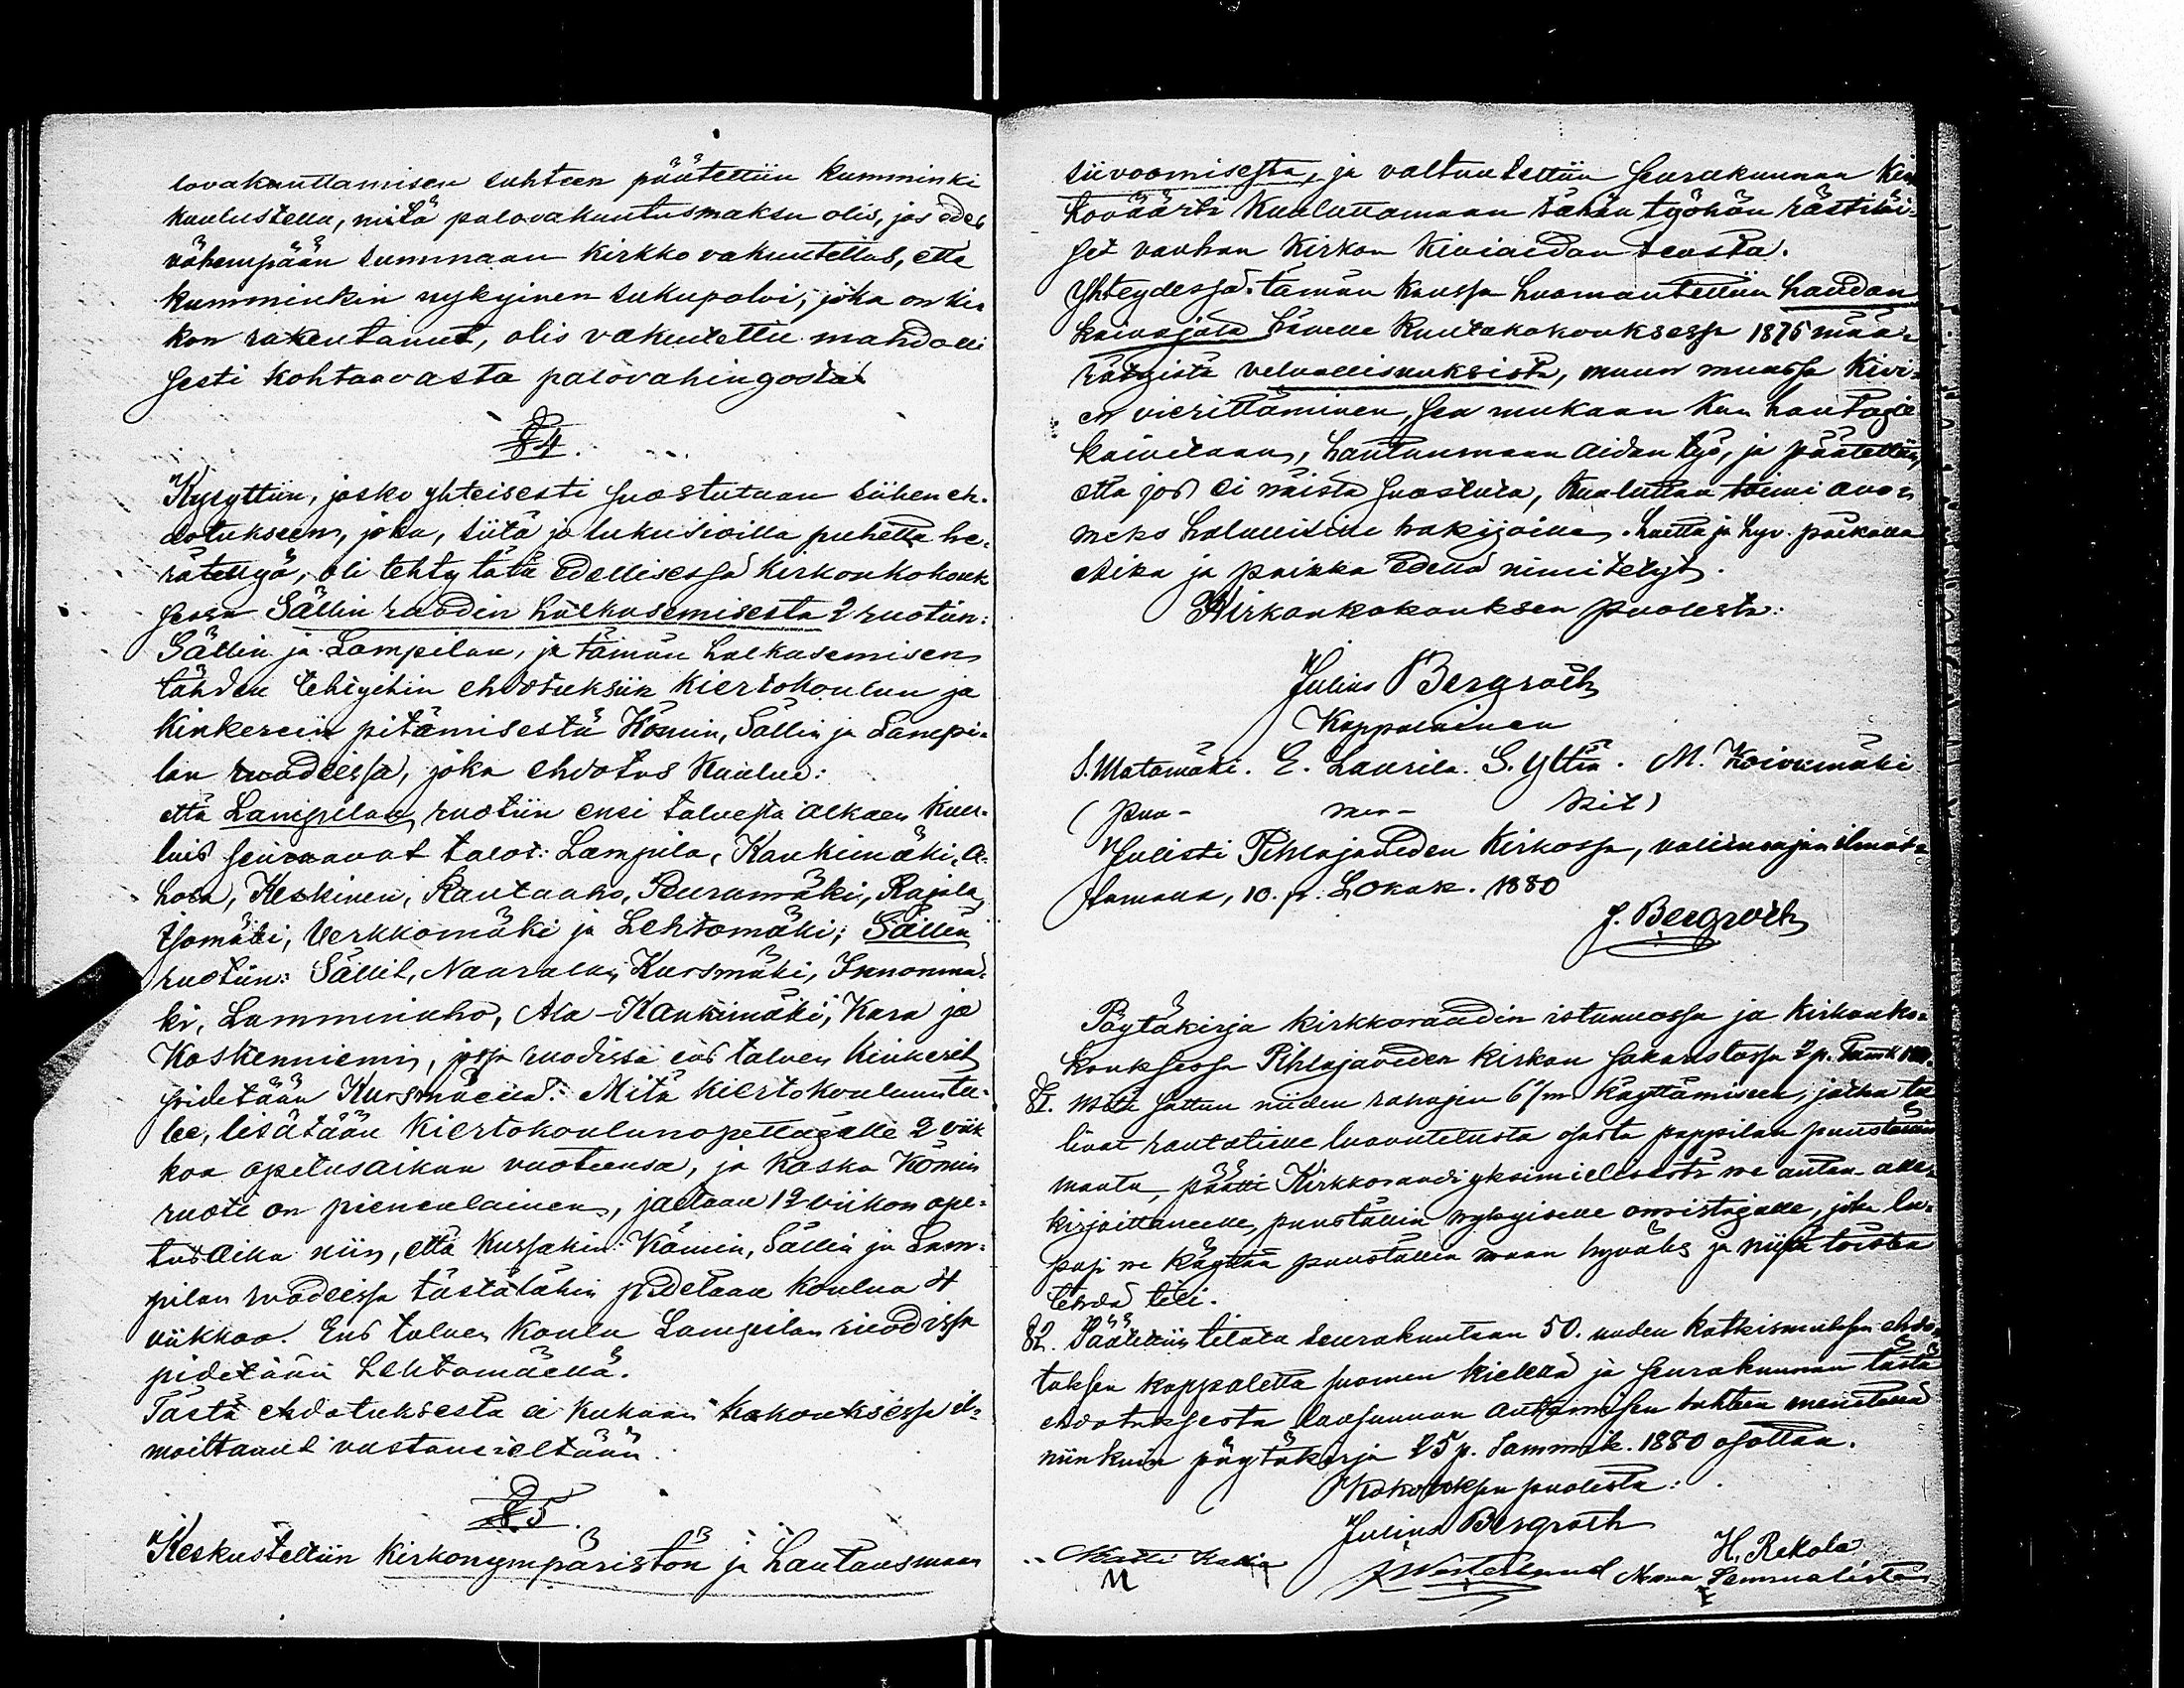 lovakuuttamisen suhteen päätettiin kumminki
kuulustella, mitä palovakuutusmaksu olis, jos edes
vähempään summaan kirkko vakuutettas, että
kumminkin nykyinen sukupolvi, joka on kir
kon rakentanut, olis vakuutettu mahdolli
sesti kohtaavasta palovahingosta.
§ 4.
Kysyttiin, josko yhteisesti suostutaan siihen eh-
dotukseen, joka, siitä jo lukusioilla puhetta he-
rätettyä, oli tehty tätä edellisessä kirkonkokouk
sessa Sällin ruodin halkasemisesta 2 ruotiin:
Sällin ja Lampilan, ja tämän halkasemisen
tähden tehtyihin ehdotuksiin kiertokoulun ja
kinkerein pitämisestä Kömin, Sällin ja Lampi-
lan ruodeissa, joka ehdotus kuuluu:
että Lampilan ruotiin ensi talvesta alkaen kuu-
luis seuraavat talot: Lampila, Kaukimäki, A-
hola, Keskinen, Rautaaho, Peuramäki, Rajala,
Isomäki, Verkkomäki ja Lehtomäki; Sällin
ruotiin: Sällit, Naurala, Kursmäki, Innonmä-
ki, Lamminaho, Ala-Kaukimäki, Kara ja
Koskenniemi, jossa ruodissa ens talven kinkerit
pidetään Kursmäellä. Mitä kiertokouluun tu-
lee, lisätään kiertokoulunopettajalle 2 viik
koa opetusaikaa vuoteensa, ja koska Kömin
ruoti on pienenlainen, jaetaan 12 viikon ope-
tusaika niin, että kussakin: Kömin, Sällin ja Lam-
pilan ruodeissa tästälähin pidetään koulua 4
viikkoa. Ens talven koulu Lampilan ruodissa
pidetään Lehtomäellä.
Tästä ehdotuksesta ei kukaan kokouksessa il-
moittanut vastamieltään.
§ 5.
Keskusteltiin kirkonympäristön ja hautausmaan
siivoomisesta, ja valtuutettiin seurakunnan
koväärti kuuluttamaan tähän työhön rästiläi-
set vanhan kirkon kiviaidan teosta.
Yhteydessä tämän kanssa huomautettiin haudan
kaivajata hänelle kuntakokouksessa 1875 mää-
rätyistä velvollisuuksista, muun muassa kivi-
en vierittäminen, sen mukaan kun hautoja
kaivetaan, hautausmaan aidan työ, ja päätettiin,
että jos ei näistä suostuta, kuulutetaan toimi avo-
neks halullisille hakijoille. Luettu ja hyv. paikalla
Aika ja paikka edellä nimitetyt.
Kirkonkokouksen puolesta:
Julius Bergroth
Kappalainen
S. Matomäki. E. Laurila. S. Yltiä. M. Koivumäki
( puu- mer- kit)
Julisti Pihlajaveden kirkossa, valitusajan ilmoit-
tamalla, 10. p. Lokak. 1880
J. Bergroth
Pöytäkirja kirkkoraadin istunnossa ja kirkonko-
kouksessa Pihlajaveden kirkon sakaristossa 2 p.
§ 1. Mitä sattuu niiden rahojen käyttämiseen, jotka tu
livat rautatielle luovutetusta osasta pappilan puustellin
maata, päätti Kirkkoraadi yksimielisesti ne antaa alle-
kirjoittaneelle, puustellin nykyiselle omistajalle, joka lu-
pasi ne käyttää puustellin maan hyväks ja niistä
tehdä tili.
§ 2. Päätettiin tilata seurakuntaan 50. uuden katkismuksen ehdo-
tuksen kappaletta suomen kielellä ja seurakunnan tästä
ehdotuksesta lausunnon antamisen suhteen menetellä
niinkuin pöytäkirja 25 p. Tammik. 1880 osottaa.
Kokouksen puolesta:
Julius Bergroth
H. Rekola
J Westerlund